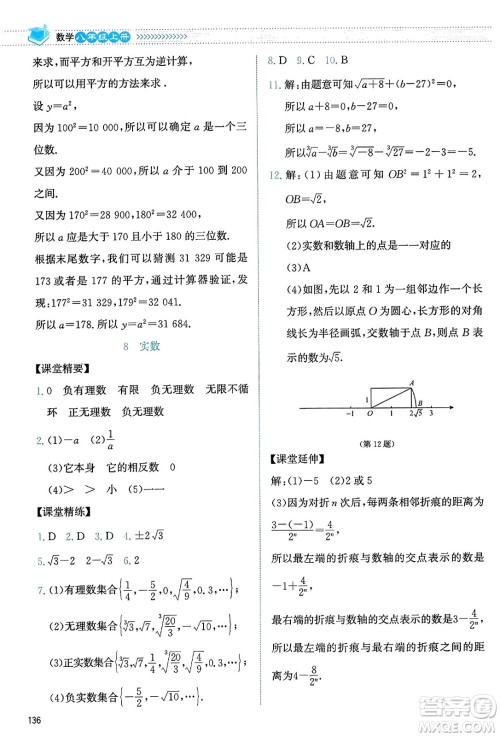 数学八年级上册
来求，而平方和开平方互为逆运算，
所以可以用开平方的方法来求.
设 y=a²,
因为 100²=10 000，所以 a 为三
位数.
又因为 200²=40 000,
所以可以估计 a 在 100 与 200
之间.
又因为 170²=28 900,
所以 a 应是大于 170 的三位数.
根据末尾数字，我们可以猜测 31 329 可能是
173 或者是 177 的平方，通过计算器验证，发
现：177²=31 329,
所以 a=178，所以 y=a²=31 684.
8 实数
【课堂精要】
1. 0 负有理数 有限 负无理数 无限不循
环 正无理数 负无理数
2. (1)-a (2)1/a
(3)它本身 它的相反数 0
(4)> > 小 大
【课堂精练】
1. D 2. D 3. D 4. ±2√3
5. √3-2 2-√3 6. 2
7. (1)有理数集合{1/4, -5/2, √(4/9), 0, 0.3, …}
(2)无理数集合{∛3, 7, ∛(20/3), …}
(3)正实数集合{∛3, 1/4, 7, ∛(20/3), √(4/9), 0.3, …}
(4)负实数集合{-5/2, …}
8. D 9. C 10. D
11. 解：由题意可知 √(a+8)+(b-27)²=0,
所以 a=-8，b=27.
所以 ∛a-∛b=∛-8-∛27=-2-3=-5.
12. 解：(1)由题意可知 OB²=1²+1²=2,
所以 OB=√2.
所以 OA=OB=√2.
(2)实数和数轴上的点是一一对应的
(3)A
(4)如图，以 2 和 1 为一组邻边作一个
长方形，然后以原点 O 为圆心，以对角
线长为半径画弧，交数轴于点 B，点 B
表示的数为 √5.
A
B
-1 0 1 2 √5 3
（第 12 题）
【课堂延伸】
解：(1)-5 (2)2 或 5
(3)因为对折 n 次后，相邻两折痕的距离
为 (3-(-1))/2ⁿ=4/2ⁿ,
所以最左端的折痕与数轴的交点表示的数是
-1+4/2ⁿ,
最右端的折痕与数轴的交点表示的数为3-4/2ⁿ.
所以最左端的折痕和最右端的折痕之间的距离
为 4-8/2ⁿ.
136